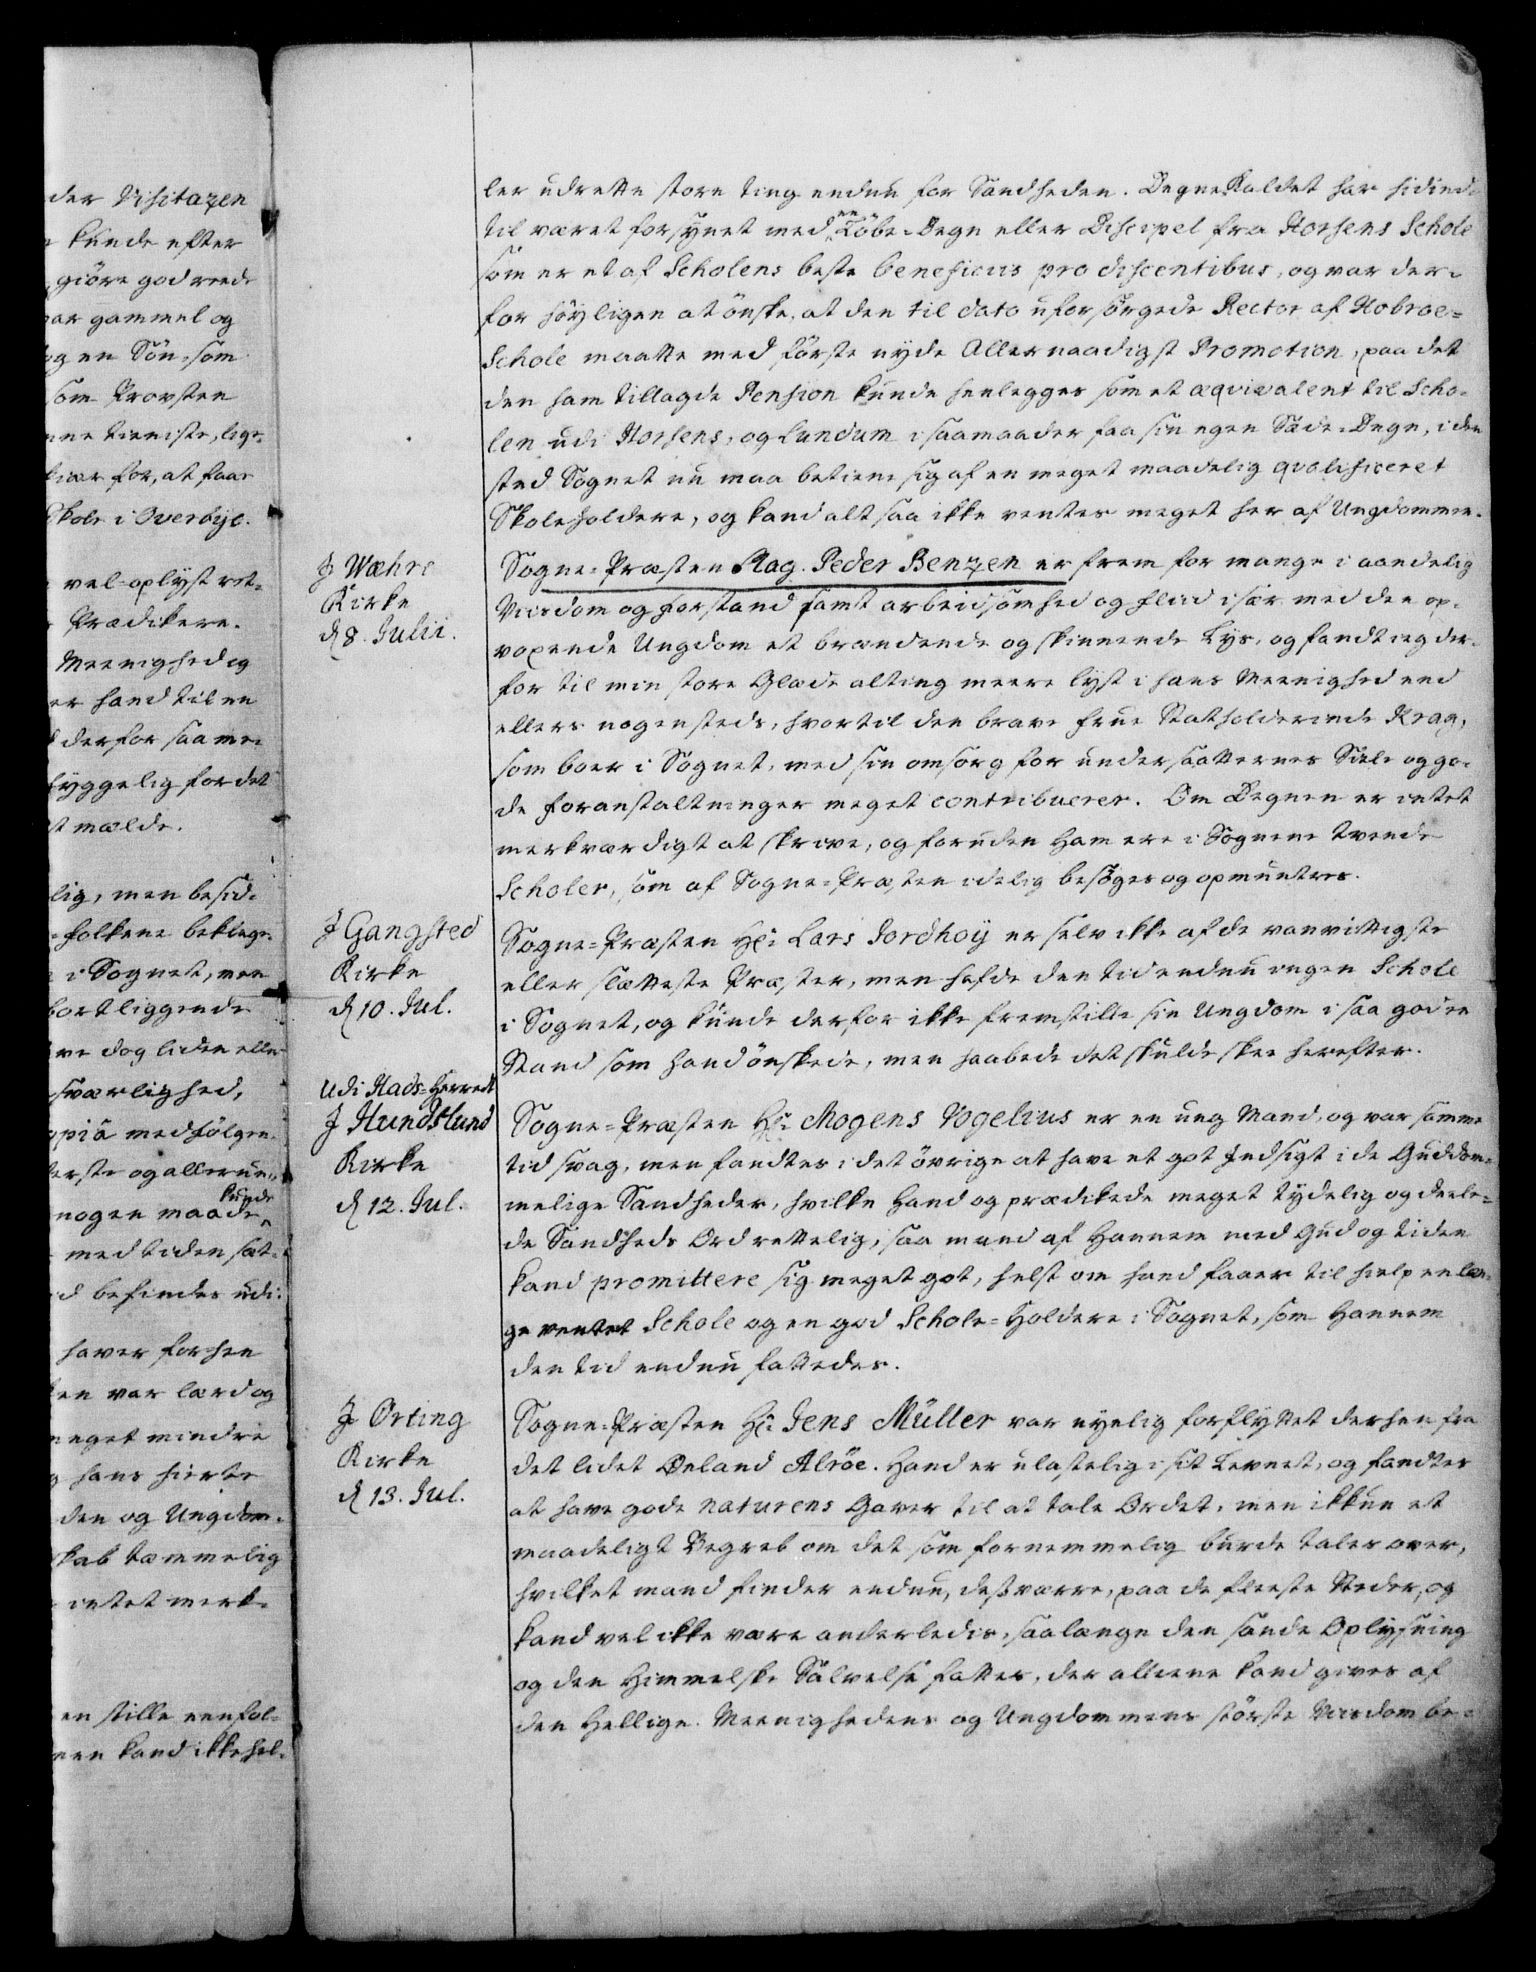 der Visitazen
kunde efter
giöre god rede
var gammel og
og en Sön, som
som Provsten
tieniste, lige-
for, at faar
Skole i Overbye.
vel-oplyst ret-
Prædikere.
Meenighed og
er hand til en
derfor saa me-
hyggelig for det
mælde.
lig, men besid-
folkene beklage-
i Sognet, men
bortliggende
dog liden eller
sværlighed,
opiâ medfölgen-
erste og allerun-
nogen maade kunde
med tiden sæt-
befindes udi-
haver forhen
en var lærd og
meget mindre
hans hierte
den og Ungdom-
skab temmelig
intet merk-
en stille eenfol-
men kand ikke hel-
ler udrette store ting endnu for Sandheden. Degne Kaldet har hidind
til været forsynet med en Löbe-Degn eller Discipel fra Horsens Schole
som er et af Scholens beste beneficiis pro discentibus, og var der-
for höyligen at önske, at den til dato uforsörgede Rector af Hobroe-
Schole maatte med förste nyde Allernaadigst Promotion, paa det
den ham tillagde Pension kunde henlegges som et æqvivalent til Scho-
len udi Horsens, og Lundum i saamaader faa sin egen Sæde-Degn, i den
sted Sognet nu maa betiene sig af en meget maadelig qvalificeret
Skoleholdere, og kand altsaa ikke ventes meget her af Ungdommen.
J Wæhre
Kirke
d 8. Julii.
Sogne-Præsten Mag. Peder Benzen er frem for mange i aandelig
Viisdom og forstand samt arbeidsomhed og fliid især med den op-
voxende Ungdom et brændende og skinnende Lys, og fandt ieg der-
for til min store Glæde alting meere lyst i hans Meenighed end
ellers nogensteds, hvortil den brave Frue Statholderinde Krag,
som boer i Sognet, med sin omsorg for undersaatternes Siele og go-
de foranstaltninger meget contribuerer. Om Degnen er intet
merkværdigt at skrive, og foruden Ham ere i Sognene tvende
Scholer, som af Sogne-Præsten idelig besöges og opmuntres.
J Gangsted
Kirke
d 10. Jul.
Sogne-Præsten Hr: Lars Jordhoÿ er selv ikke af de vanvittigste
eller slætteste Præster, men hafde den tid endnu ingen Schole
i Sognet, og kunde derfor ikke fremstille sin Ungdom i saa god en
Stand som hand önskede, men haabede det skulde skee herefter.
Udi Hads-Herret
J Hundslund
Kirke
d 12. Jul.
Sogne-Præsten Hr: Mogens Vogelius er en ung Mand, og var samme
tid svag, men fandtes i det övrige at have et got Indsigt i de Guddom-
melige Sandheder, hvilke Hand og prædikede meget tydelig og deele-
de Sandheds Ord rettelig, saa mand af Hannem med Gud og tiden
kand promittere sig meget got, helst om hand faaer til hielp en læn-
ge ventet Schole og en god Schole-Holdere i Sognet, som Hannem
den tid endnu fattedes.
J Örting
Kirke
d 13. Jul.
Sogne-Præsten Hr: Jens Müller var nyelig forflyttet derhen fra
det lidet Öeland Alröe. Hand er ulastelig i sit Levnet, og fandtes
at have gode naturens Gaver til at tale Ordet, men ikkun et
maadeligt Begreb om det som fornemmelig burde tales over,
hvilket mand finder endnu, desværre, paa de fleeste Steder, og
kand vel ikke være anderledis, saalænge den sande Oplysning
og den Himmelske Salvelse fattes, der alleene kand gives af
den Hellige. Meenighedens og Ungdommens störste Viisdom be-